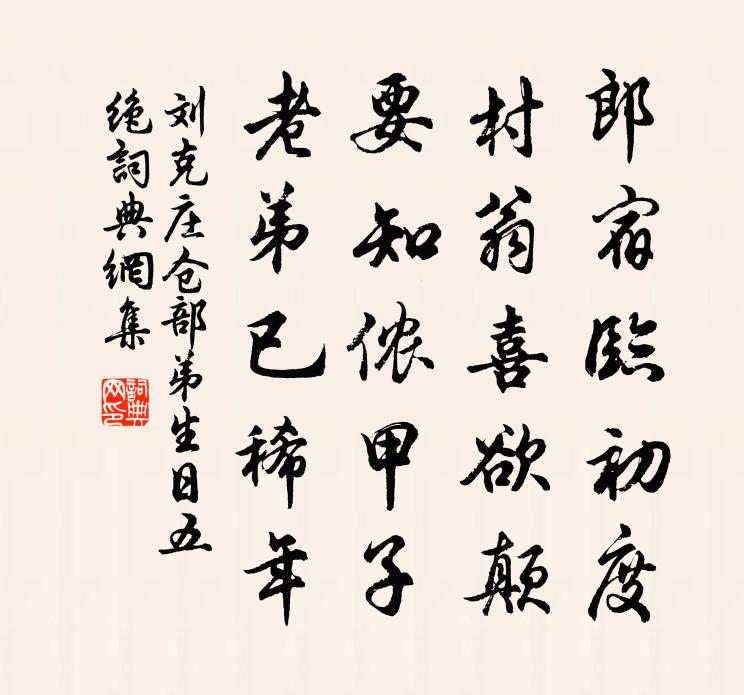 郎宿临初度
村翁喜欲颠
要知侬甲子
老弟已稀年
刘克庄仓部弟生日五
绝詞典網集
詞典
网印